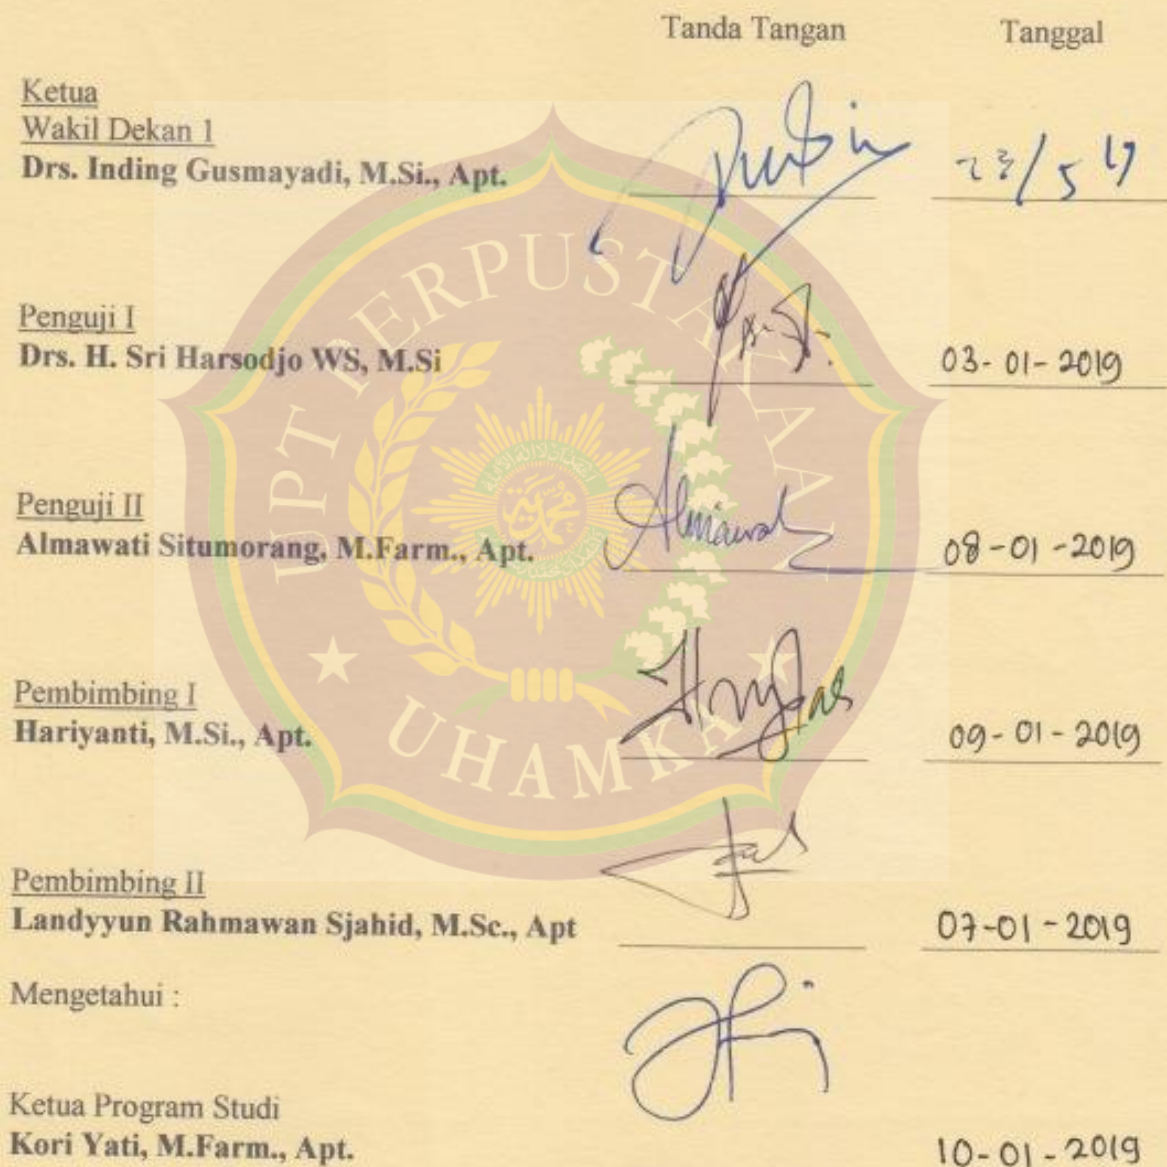 Tanda Tangan Tanggal
Ketua
Wakil Dekan 1
Drs. Inding Gusmayadi, M.Si., Apt.
23/5 19
Penguji I
Drs. H. Sri Harsodjo WS, M.Si
03-01-2019
Penguji II
Almawati Situmorang, M.Farm., Apt.
08-01-2019
Pembimbing I
Hariyanti, M.Si., Apt.
09-01-2019
Pembimbing II
Landyyun Rahmawan Sjahid, M.Sc., Apt
07-01-2019
Mengetahui :
Ketua Program Studi
Kori Yati, M.Farm., Apt.
10-01-2019
UPT PERPUSTAKAAN
UHAMKA